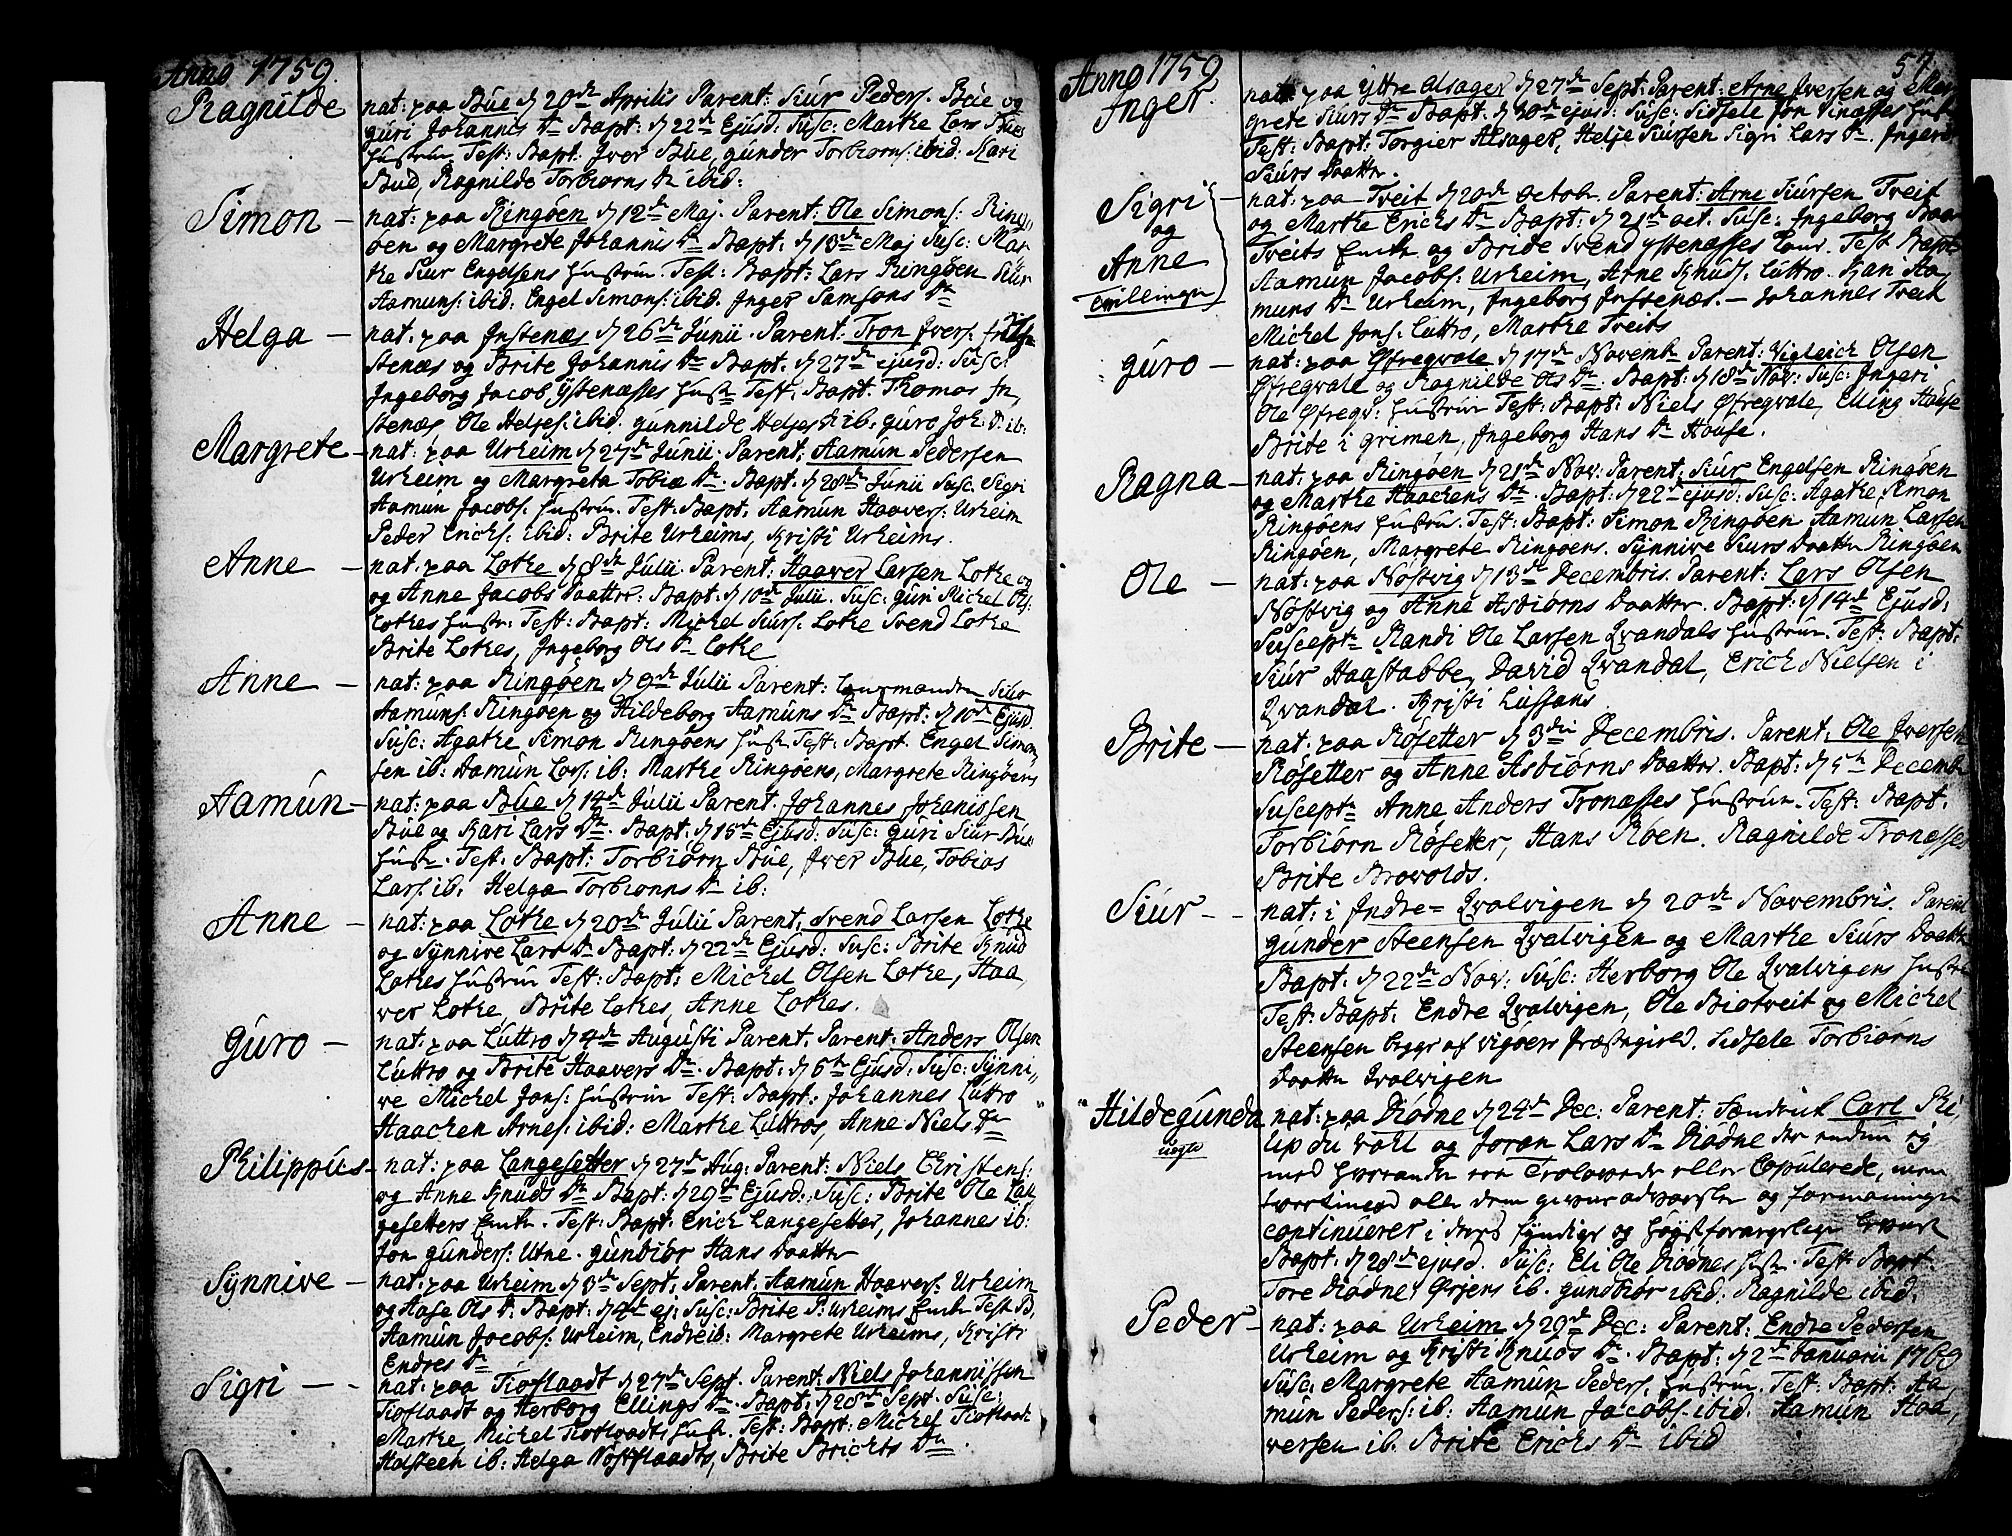 Anno 1759.
Ragnilde nat: paa Büe d 20de Aprilis Parent: Siur Peders. Büe og
guri Johannis Dr Bapt: d 22de Ejusd: Susc: Marthe Lars Bües
Hustrue Test: Bapt: Iver Büe, gunder Torbiorns: ibid: Kari
Bud, Ragnilde Torbiørns Dr ibid:
Simon – nat: paa Ringøen d 12de Maj. Parent: Ole Simons: Ring,,
øen og Margrete Johannis Dr Bapt: d 13de Maj Susc: Mar
the Siur Engelsens Hustrue. Test: Bapt: Lars Ringøen Siur
Aamuns: ibid: Engel Simons: ibid. Inger Samsons Dr
Helga – nat: paa Instenæs d 26de Junii. Parent: Tron Ivers.
stenæs og Brite Johannis Dr Bapt: d 27de ejusd: Susc:
Ingeborg Jacob Ystenæsses Hustr Test: Bapt. Thomas In,
stenæs Ole Heljes: ibid. gunnilde Heljes D ib. guro Joh: D ib:
Margrete – nat: paa Urheim d 27de Junii. Parent: Aamun Pedersen
Urheim og Margreta Tobiæ Dr. Bapt: d 28de Junii Susc. Sigri
Aamun Jacobs. Hustrue. Test: Bapt: Aamun Haavers: Urheim
Peder Erichs: ibid: Brite Urheims, Kristi Urheims.
Anne – nat: paa Lothe d 8de Julii Parent: Haaver Larsen Lothe og
og Anne Jacobs Daatter. Bapt: d 10de Julii. Susc: Guri Michel Ols:
Lothes Hustr: Test: Bapt: Michel Siurs: Lothe Svend Lothe
Brite Lothes, Ingeborg Ols Dr Lothe
Anne – nat: paa Ringøen d 9de Julii Parent: Siur
Aamuns: Ringøen og Hildeborg Aamuns Dr Bapt: d 10de Ejusd
Susc: Agathe Simon Ringøens Hustr Test: Bapt. Engel Simon
sen ib: Aamun Lars: ib: Marthe Ringøens, Margrete Ringøens
Aamun – nat: paa Büe d 14de Julii Parent: Johannes Johanissen
Büe og Kari Lars Dr. Bapt: d 15de Ejusd: Susc: guri Siur Bües
Hustr. Test: Bapt: Torbiørn Büe, Iver Büe, Tobias
Lars: ib. Helga Torbiorns Dr ib:
Anne – nat: paa Lothe d 20de Julii Parent: Svend Larsen Lothe
og Synnive Lars Dr Bapt: d 22de Ejusd: Susc: Brite Knud
Lothes Hustrue Test: Bapt: Michel Olsen Lothe, Haa
ver Lothe, Brite Lothes, Anne Lothes.
Guro – nat: paa Luttro d 4de Augusti Parent. Parent: Anders Olsen
Luttro og Brite Haavers Dr. Bapt: d 6te Ejusd. Susc: Synni,,
ve Michel Jons: Hustrue Test: Bapt: Johannes Luttro
Haachen Arnes: ibid: Marthe Luttros, Anne Niels Dr
Philippus – nat: paa Langesetter d 27de Aug: Parent: Niels Christens:
og Anne Knuds Dr Bapt: d 29de Ejusd: Susc: Brite Ole Lan
gesetters Enke. Test: Bapt: Erich Langesetter, Johannes ib:
Jon gunders: Utne. gundiør Hans Daatter
Synnive – nat: paa Urheim d 3de Sept. Parent: Aamun Haavers: Urheim
og Aase Ols D. Bapt: d 4de ej: Susc: Brite P: Urheims Enke Test B.
Aamun Jacobs: Urheim, Endre ib: Margrete Urheims, Kristi
Endres Dr
Sigri – – nat: paa Tioflaadt d 27de Sept. Parent: Niels Johannissen
Tioflaadt og Herborg Ellings Dr. Bapt: d 28de Sept. Susc:
Marthe Michel Tioflaadts Hustr. Test: Bapt: Michel Tioflaadt
Holsteen ib: Helga Nøstflaadts, Brite Brichts Dr.
Anno 1759. 57.
Inger. nat: paa Yttre Alsager d 27de Sept: Parent: Arne Iversen og Mar
grete Siurs Dr Bapt: d 30de ejusd: Susc: Sidsele Jon Vinæsses Hust
Test: Bapt: Torgier Alsager, Helje Siursen Sigri Lars Dr. Ingerd
Siurs Daatter.
Sigri nat: paa Tveit d 20de Octobr. Parent: Arne Siursen Tveit
og og Marthe Erichs Dr Bapt: d 21de oct. Susc: Ingeborg
Anne Tveits Enke og Bride Svend Ystenæsses Test Bapt:
Tvillinger Aamun Jacobs: Urheim, Arne Knuds. Luttro. Kan Aa,
muns Dr Urheim, Ingeborg Instenæs. – Johannes Tveit
Michel Jons: Luttro, Marthe Tveits
guro – nat: paa Øfregvale d 17de Novemb. Parent: Vigleich Olsen
Øfregvale og Ragnilde Ols Dr. Bapt: d 18de Nov: Susc: Ingeri
Ole Øfregv: Hustrue Test: Bapt: Niels Øfregvale, Elling House
Brite i Grimen, Ingeborg Hans Dr House.
Ragna – nat: paa Ringøen d 21de Nov: Parent: Siur Engelsen Ringøen
og Marthe Haachens Dr. Bapt: d 22de ejusd: Susc: Agathe Simon
Ringøens Hustrue. Test: Bapt: Simon Ringøen Aamun Larsen
Ringøen, Margrete Ringøens. Synnive Siurs Daatter Ringøen
Ole – nat: paa Nøstvig d 13de Decembris. Parent: Lars Olsen
Nøstvig og Anne Asbiørns Daatter. Bapt: d 14de Ejusd:
Suscept: Randi Ole Larsen Qvandals Hustrue. Test: Bapt:
Siur Haastabbe, David Qvandal, Erich Nielsen i
Qvandal. Kristi Lussans
Brite – nat: paa Røsetter d 3die Decembris. Parent: Ole Iversen
Røsetter og Anne Asbiørns Daatter. Bapt: d 5te Decemb
Suscept: Anne Anders Tronæsses Hustrue. Test: Bapt:
Torbiørn Røsetter, Hans Røen. Ragnilde Tronæsses
Brite Brovolds.
Siur – – nat: i Indre= Qvalvigen d 20de Novembris. Parent
gunder Steensen Qvalvigen og Marthe Siurs Daatter
Bapt: d 22de Nov: Susc: Herborg Ole Qvalvigens Hustr
Test: Bapt: Endre Qvalvigen, Ole Biotveit og Michel
Steensen begge af Vigøers Præstegield. Sidsele Torbiørns
Daatter Qvalvigen
Hildegunda nat: paa Diødne d 24de Dec: Parent: Carl Phi,
uægte lip du Vahl og Joran Lars Dr Diødne der endnu ey
med hverandre ere Trolovede eller Copulerede, men
tvertimod alle dem givne advarsler og formaninger
continuerer i deres syndige og høyst forargelige
Bapt: d 28de ejusd. Susc: Eli Ole Diødnes Hust. Test: Bapt:
Tore Diødne, Ørjens ib. gundbiør ibid. Ragnilde ibid.
Peder – nat: paa Urheim d 29de Dec: Parent: Endre Pedersen
Urheim og Kristi Knuds Dr. Bapt: d 2de Januarii 1760
Susc: Margrete Aamun Peders. Hustrue. Test: Bapt: Aa,
mun Peders: ib: Aamun Jacobs. ibid: Aamun Haa,
versen ib. Brite Erichs Dr ibid